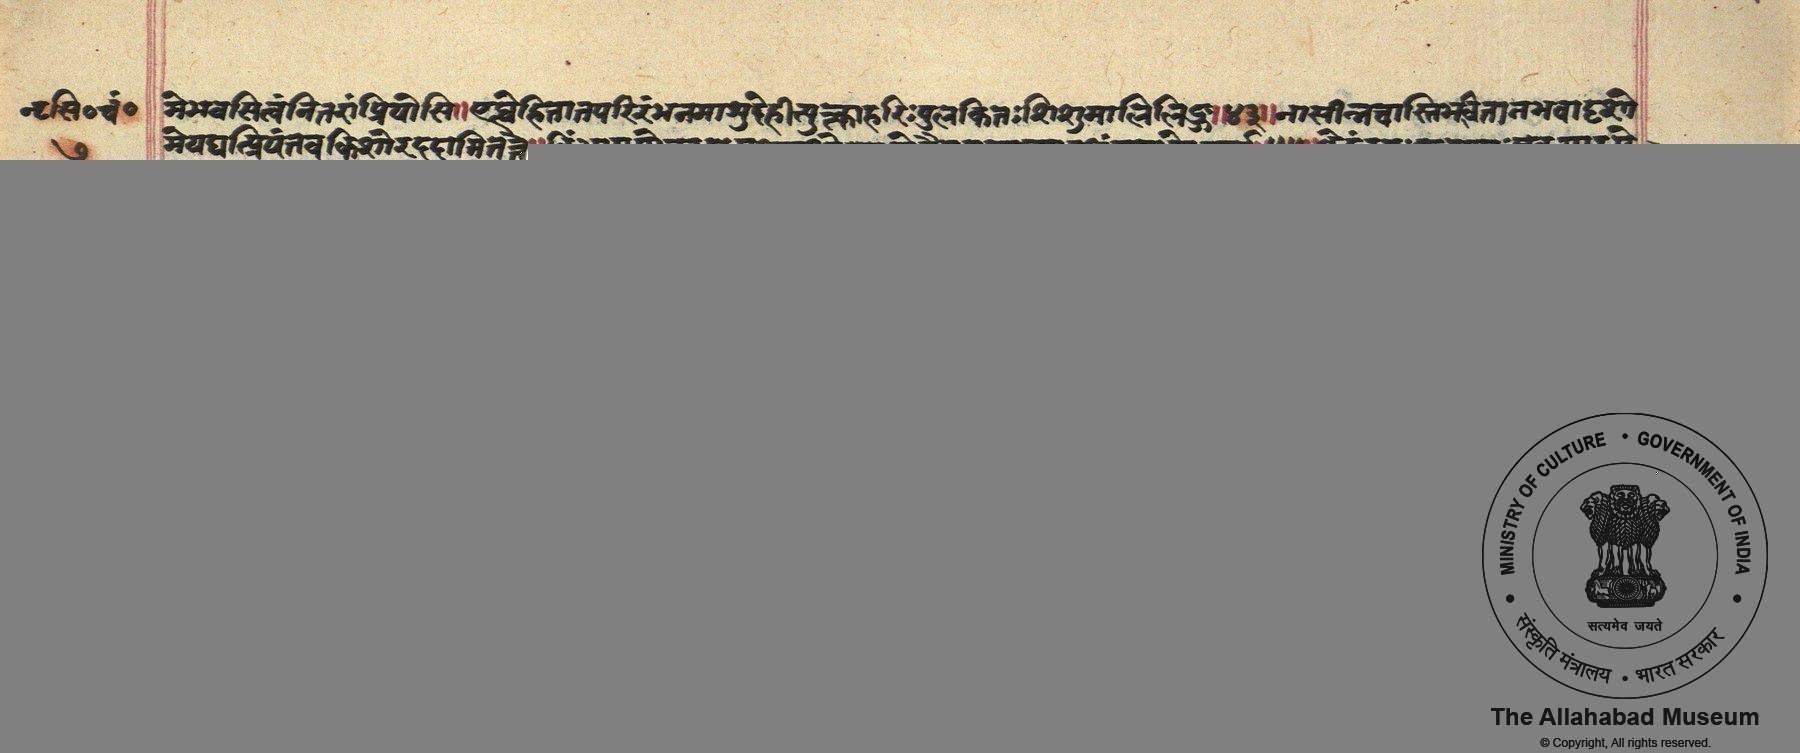 नृसिं॰चं॰
७
मेभवसित्वंनितरांप्रियोसि॥ एह्येहितातपरिरंभनमाशुदेहीत्युक्त्वाहरिःपुलकितःशिशुमालिलिङ्ग॥४३॥नासीन्नचास्तिभवितानभवादृशो
मेयद्यत्प्रियंतवकिशोरददामितत्ते
MINISTRY OF CULTURE • GOVERNMENT OF INDIA
सत्यमेव जयते
संस्कृति मंत्रालय • भारत सरकार
The Allahabad Museum
© Copyright, All rights reserved.